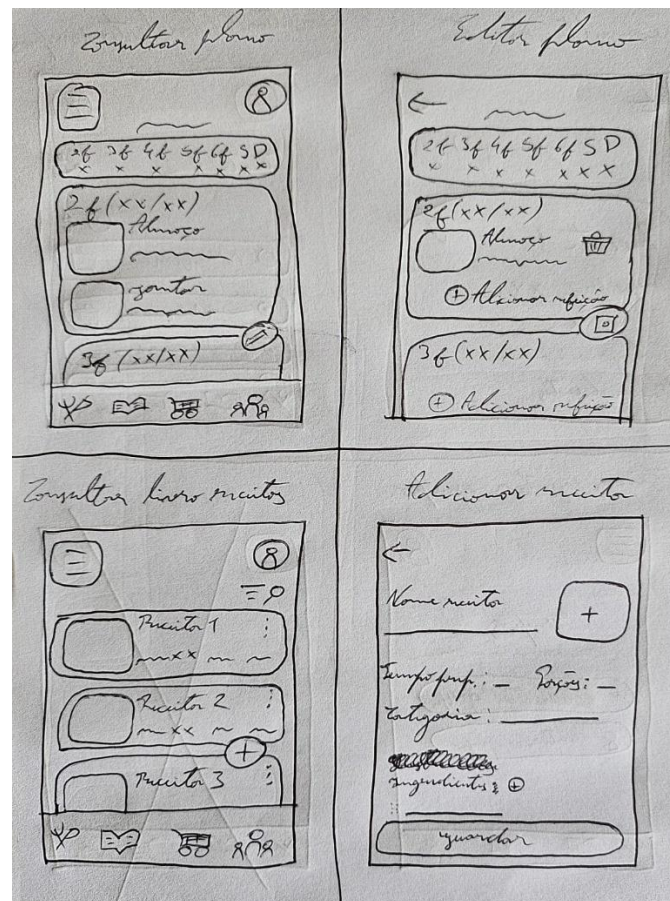 Consultar plano
2f 3f 4f 5f 6f S D
x x x x x x x
2f (xx/xx)
Almoço
Jantar
3f (xx/xx)
Editar plano
2f 3f 4f 5f 6f S D
x x x x x x x
2f (xx/xx)
Almoço
+ Adicionar refeição
3f (xx/xx)
+ Adicionar refeição
Consultar livro receitas
Receita 1
xx
Receita 2
xx
Receita 3
Adicionar receita
Nome receita
+
Tempo prep.: Porções:
Categoria:
Ingredientes: +
guardar